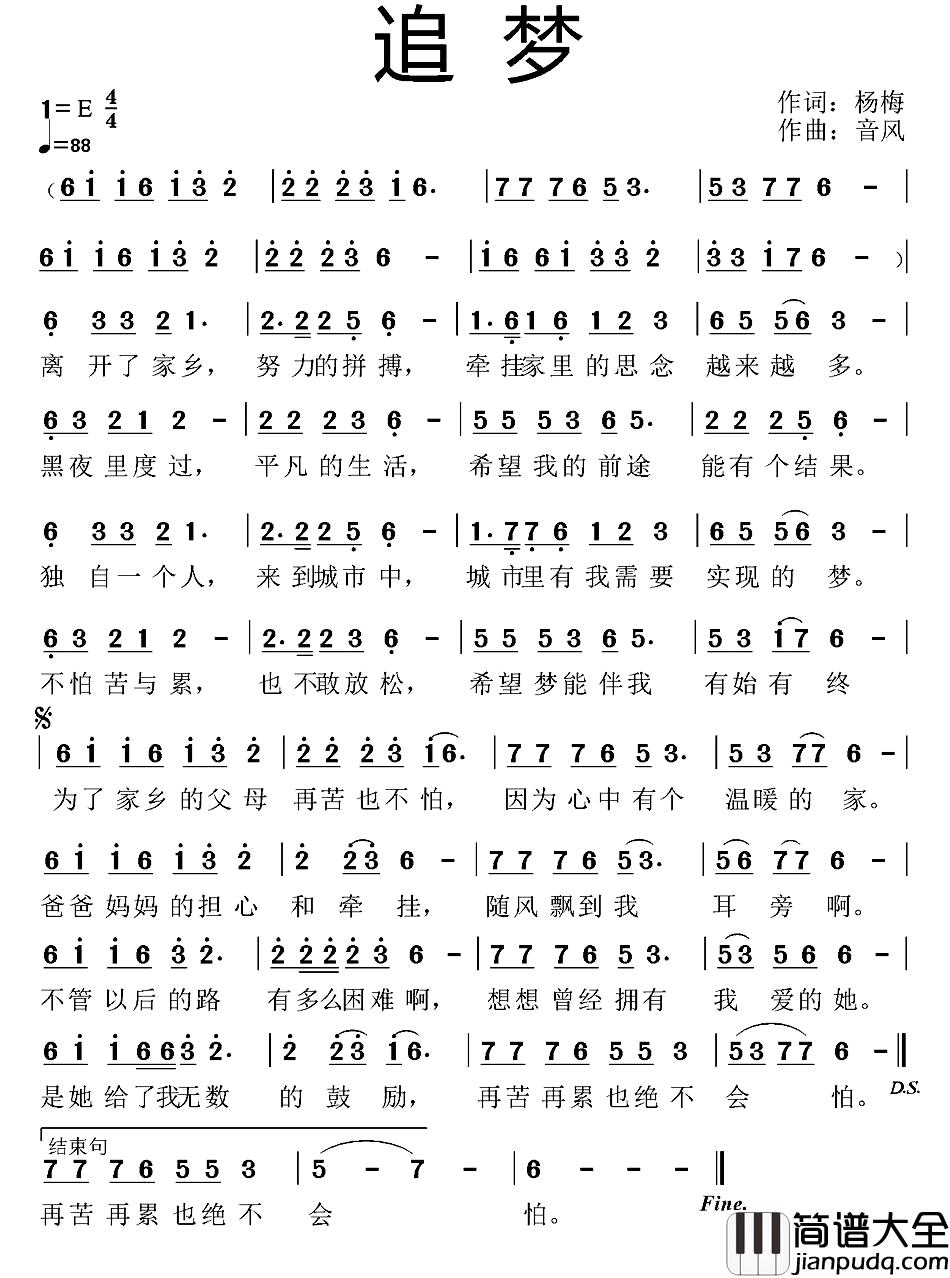 追 梦
1=E 4/4
♩=88
作词：杨梅
作曲：音风
（6i i6 i3 2 | 22 23 i6. | 77 76 53. | 53 77 6 - |
6i i6 i3 2 | 22 23 6 - | i6 6i 33 2 | 33 i7 6 - ）|
6 33 21. | 2.225 6 - | 1.616 12 3 | 65 56 3 - |
离 开了家乡， 努力的拼搏， 牵挂家里的思念 越来越 多。
63 21 2 - | 22 23 6 - | 55 53 65. | 22 25 6 - |
黑夜里度过， 平凡的生活， 希望我的前途 能有个结果。
6 33 21. | 2.225 6 - | 1.776 12 3 | 65 56 3 - |
独 自一个人， 来到城市中， 城市里有我需要 实现的 梦。
63 21 2 - | 2.223 6 - | 55 53 65. | 53 i7 6 - |
不怕苦与累， 也不敢放松， 希望梦能伴我 有始有 终
| 6i i6 i3 2 | 22 23 i6. | 77 76 53. | 53 77 6 - |
为了家乡的父母 再苦也不怕， 因为心中有个 温暖的 家。
6i i6 i3 2 | 2 23 6 - | 77 76 53. | 56 77 6 - |
爸爸妈妈的担心 和牵挂， 随风飘到我 耳旁啊。
6i i6 3 2. | 22223 6 - | 77 76 53. | 53 56 6 - |
不管以后的路 有多么困难啊， 想想曾经拥有 我 爱的她。
6i i663 2. | 2 23 i6. | 77 76 55 3 | 5377 6 - ||
是她给了我无数 的鼓励， 再苦再累也绝不 会 怕。 D.S.
结束句
77 76 55 3 | 5 - 7 - | 6 - - - ||
再苦再累也绝不 会 怕。 Fine.
简谱大全
jianpudq.com